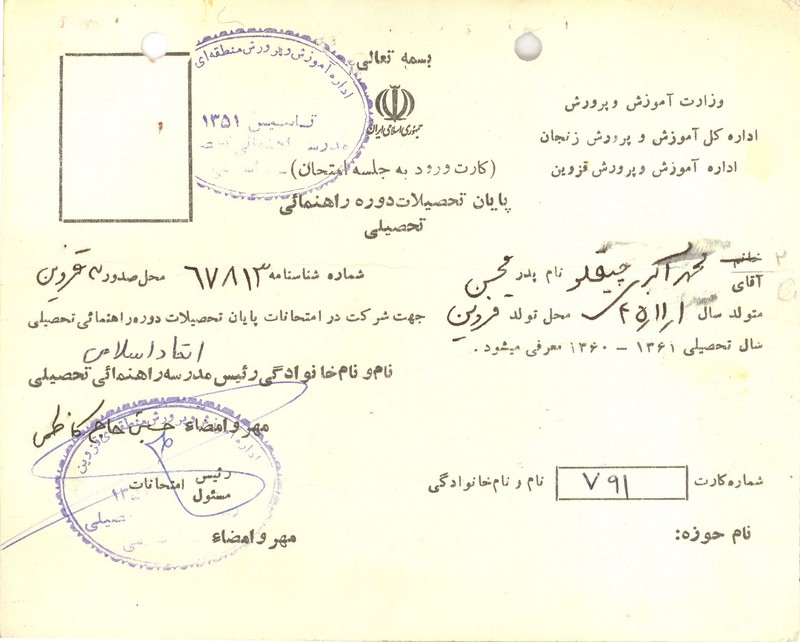 بسمه تعالی
جمهوری اسلامی ایران
وزارت آموزش و پرورش
اداره کل آموزش و پرورش زنجان
اداره آموزش و پرورش قزوین
(کارت ورود به جلسه امتحان)
پایان تحصیلات دوره راهنمائی
تحصیلی
اداره آموزش و پرورش منطقه‌ای
تأسیس ۱۳۵۱
مدرسه
خانم
آقای اکبری چیقلو نام پدر محسن شماره شناسنامه ۶۷۸۱۳ محل صدور قزوین
متولد سال محل تولد قزوین جهت شرکت در امتحانات پایان تحصیلات دوره راهنمائی تحصیلی
سال تحصیلی ۱۳۶۱ - ۱۳۶۰ معرفی میشود .
اتحاد اسلامی
نام و نام خانوادگی رئیس مدرسه راهنمائی تحصیلی
مهر و امضاء حاج کاظمی
اداره آموزش و پرورش منطقه‌ای قزوین
رئیس
مسئول
امتحانات
مهر و امضاء
شماره کارت ۷۹۱ نام و نام خانوادگی
نام حوزه: